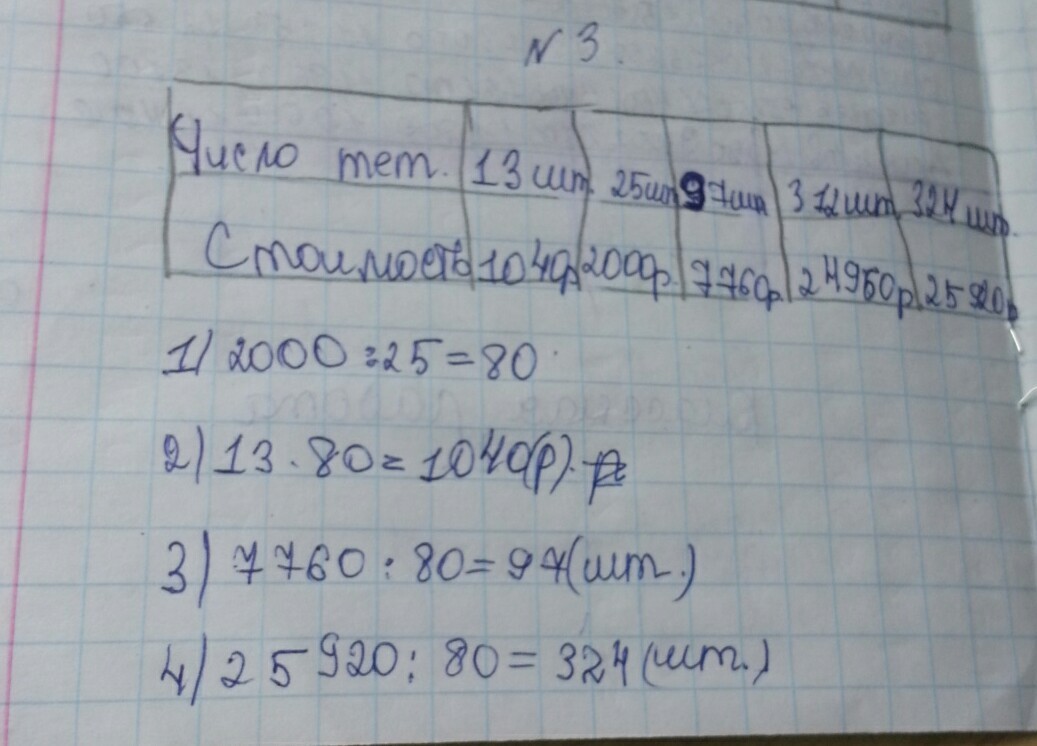 N 3.
Число тет. 13 шт. 25шт 97шт 312шт. 324 шт.
Стоимость 1040р. 2000р. 7760р. 24960р. 25920р
1) 2000 : 25 = 80
2) 13 · 80 = 1040(р).
3) 7760 : 80 = 97(шт.)
4) 25 920 : 80 = 324 (шт.)